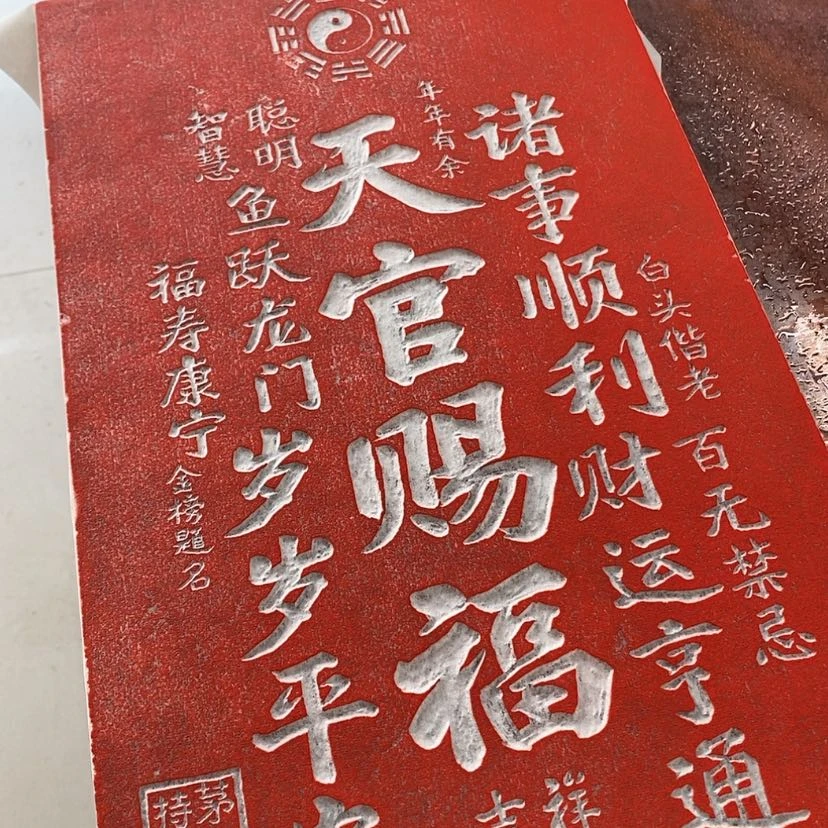 白头偕老
百无禁忌
诸事顺利
财运亨通
年年有余
天官赐福
祥
聪明
智慧
鱼跃龙门
岁岁平
福寿康宁
金榜题名